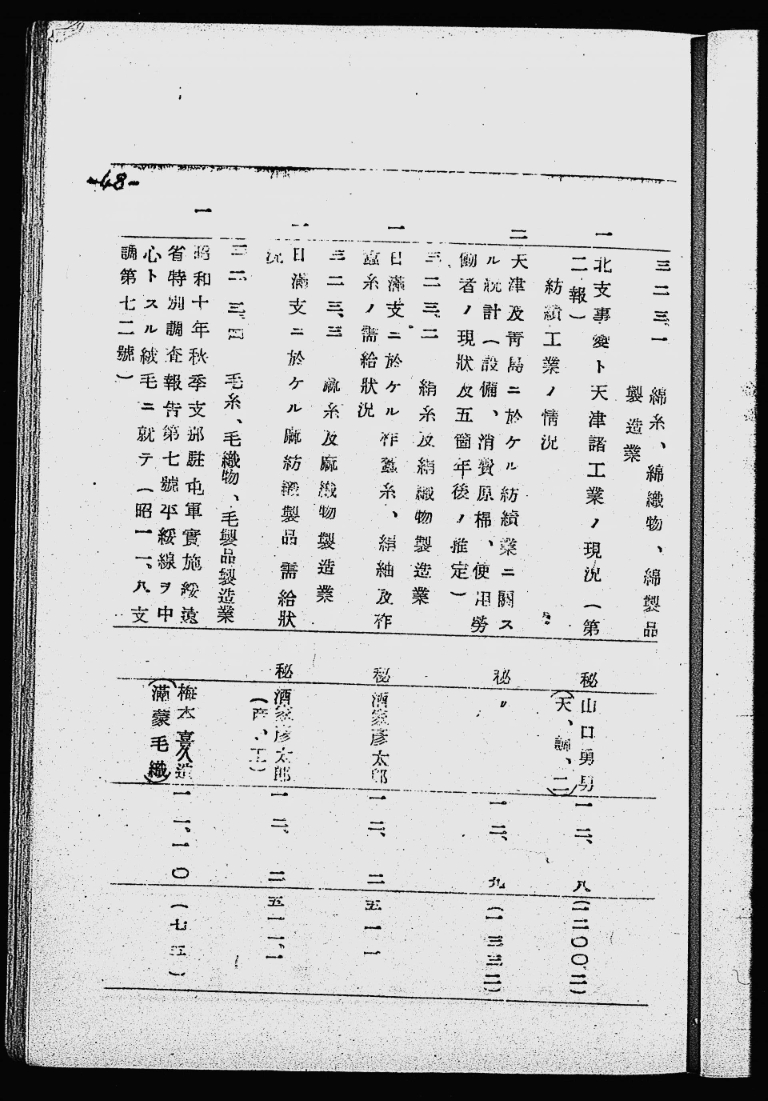 -48-
三二三、一 綿糸、綿織物、綿製品
製造業
一 北支事變ト天津諸工業ノ現況（第
二報）
秘
山口勇男
（天、調、二）
一二、八
（二二〇〇二）
紡績工業ノ情況
〃
二 天津及靑島ニ於ケル紡績業ニ關ス
ル統計（設備、消費原棉、使用勞
働者ノ現狀及五箇年後ノ推定）
秘
〃
一二、九
（一三三二）
三二三、二 絹糸及絹織物製造業
一 日滿支ニ於ケル柞蠶糸、絹紬及柞
蠶糸ノ需給狀況
秘
酒家彥太郎
一二、二
五一一
三二三、三 麻糸及麻織物製造業
一 日滿支ニ於ケル麻紡織製品需給狀
況
秘
酒家彥太郎
（產、工）
一二、二
五一一、一
三二三、四 毛糸、毛織物、毛製品製造業
一 昭和十年秋季支那駐屯軍實施綏遠
省特別調査報告第七號平綏線ヲ中
心トスル絨毛ニ就テ（昭一一、八支
調第七二號）
梅木喜久造
（滿蒙毛織）
一一、一〇
（七五）